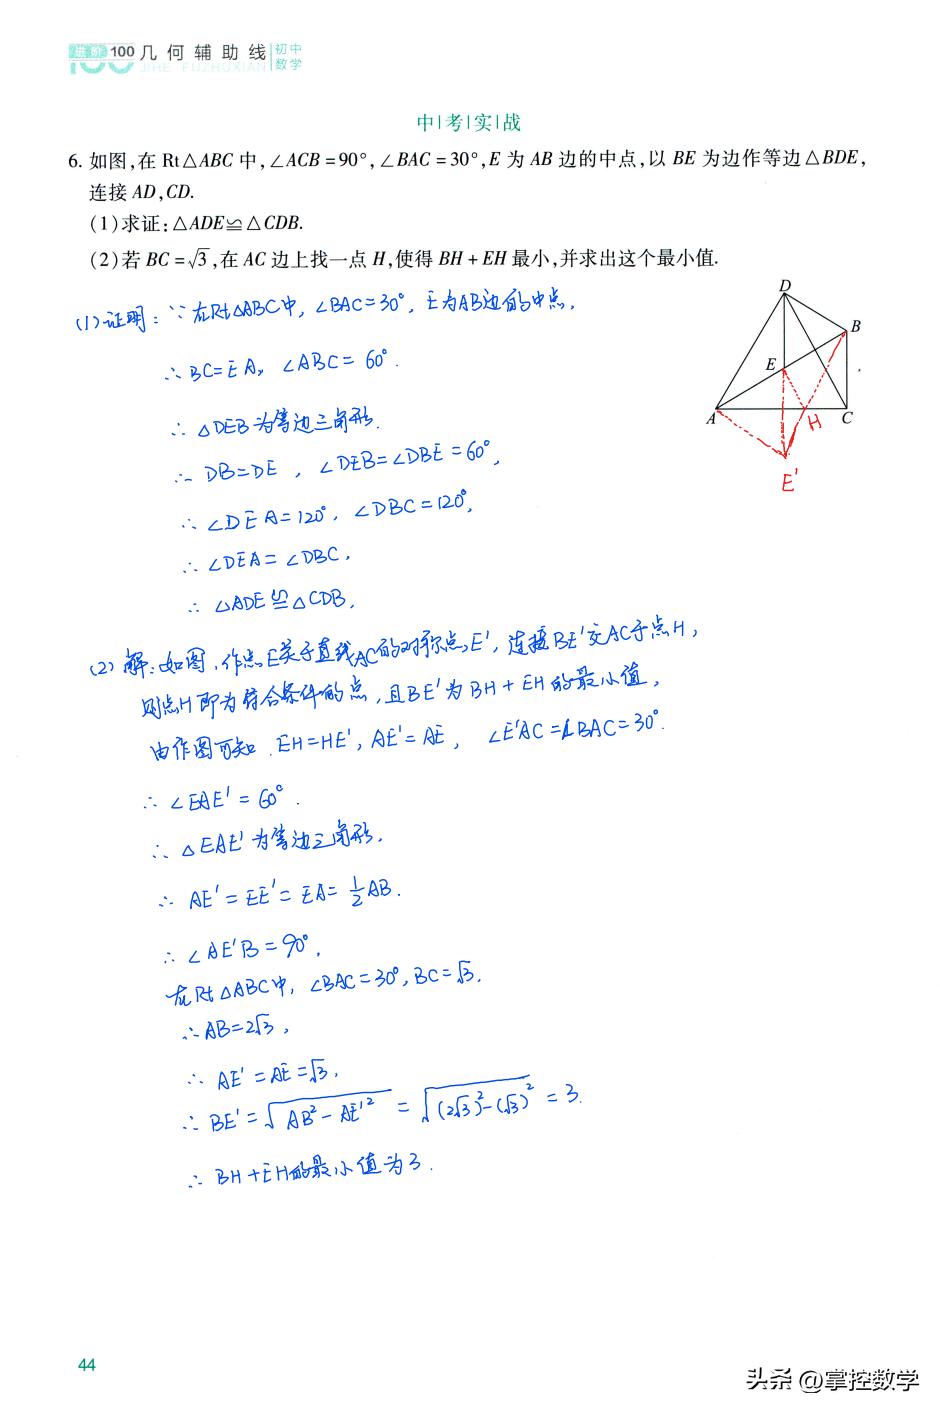 进阶100 几何辅助线 初中数学
JIHE FUZHUXIAN
中|考|实|战
6. 如图,在 Rt△ABC 中,∠ACB = 90°,∠BAC = 30°,E 为 AB 边的中点,以 BE 为边作等边△BDE,
连接 AD,CD.
(1)求证:△ADE≌△CDB.
(2)若 BC = √3,在 AC 边上找一点 H,使得 BH + EH 最小,并求出这个最小值.
(1)证明:∵在Rt△ABC中,∠BAC=30°,E为AB边的中点,
∴BC=EA, ∠ABC=60°.
∴△DEB为等边三角形.
∴DB=DE,∠DEB=∠DBE=60°,
∴∠DEA=120°,∠DBC=120°,
∴∠DEA=∠DBC,
∴△ADE≌△CDB.
(2)解:如图,作点E关于直线AC的对称点E',连接BE'交AC于点H,
则点H即为符合条件的点,且BE'为BH+EH的最小值,
由作图可知 EH=HE',AE'=AE,∠E'AC=∠BAC=30°.
∴∠EAE'=60°.
∴△EAE'为等边三角形.
∴AE'=EE'=EA=1/2AB.
∴∠AE'B=90°,
在Rt△ABC中,∠BAC=30°,BC=√3,
∴AB=2√3,
∴AE'=AE=√3,
∴BE'=√(AB²-AE'²)=√((2√3)²-(√3)²)=3.
∴BH+EH的最小值为3.
D
B
E
A
H
C
E'
44
头条 @掌控数学